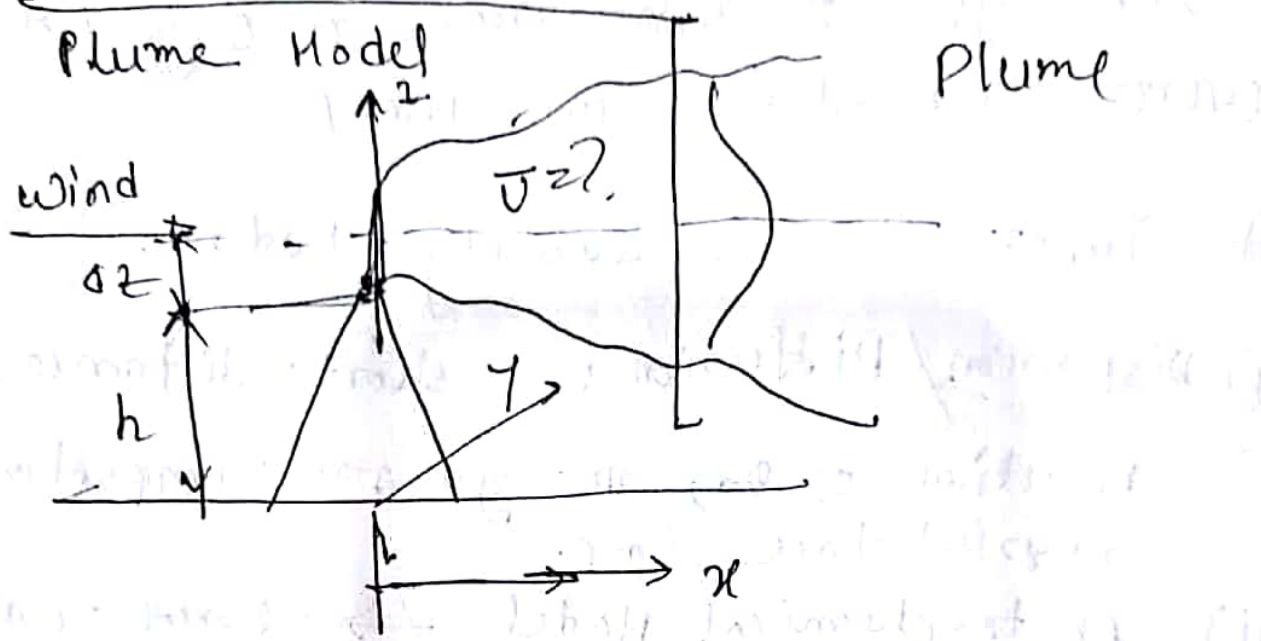 Plume Model
Plume
z
wind
U=?
ΔZ
Y
h
x